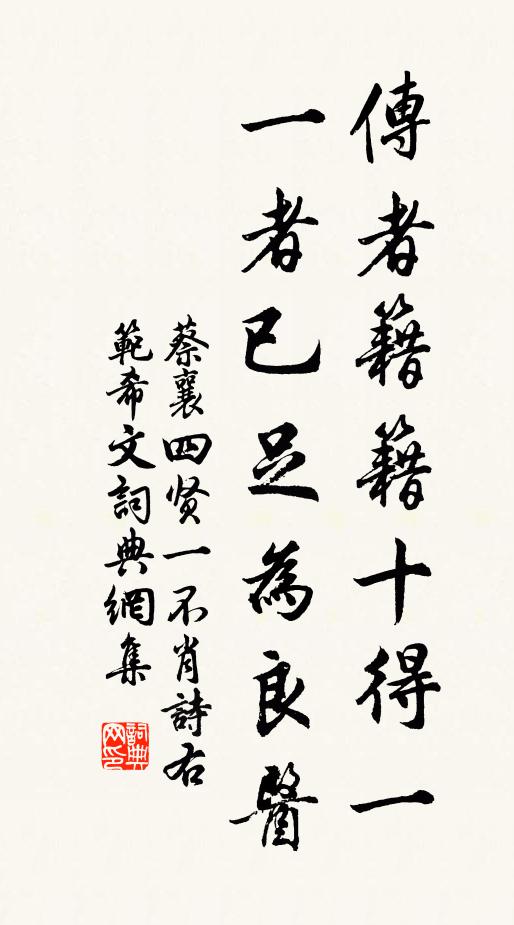 傳者籍籍十得一
一者已足為良醫
蔡襄四贤一不肖詩右
範希文詞典網集
詞典
网印